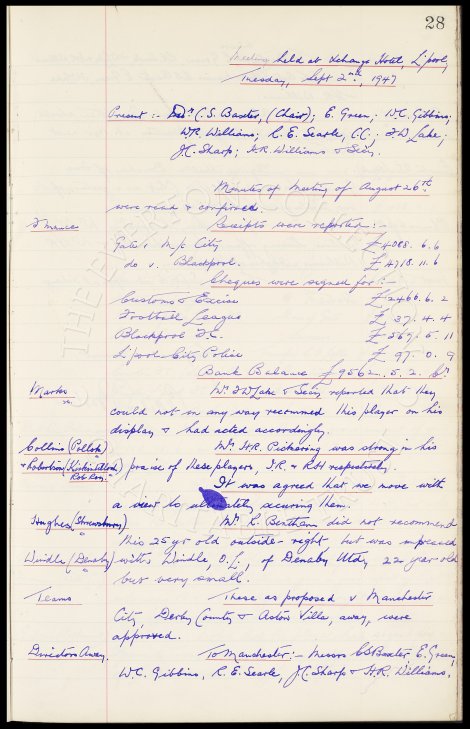 28
Meeting held at Exchange Hotel, L'pool,
Tuesday, Sept 2nd, 1947
Present :- Messrs C.S. Baxter, (Chair); E. Green; W.C. Gibbins;
W.R. Williams; R.E. Searle, C.C.; F.W Lake;
J.C. Sharp; H.R. Williams & Secy.
Minutes of Meeting of August 26th
were read & confirmed.
Finance
Receipts were reported:-
Gate v. M/c City £4088. 6. 6
do v. Blackpool. £4718. 11. 6
Cheques were signed for:-
Customs & Excise £2466. 6. 2
Football League £37. 4. 4
Blackpool F.C. £569. 5. 11
L'pool City Police £97. 0. 9
Bank Balance £9562. 5. 2. Cr
Marks
Mr. F.W Lake & Secy reported that they
could not in any way recommend this player on his
display & had acted accordingly.
Collins (Pollok)
Mr. H.R. Pickering was strong in his
& Robertson (Kirkintilloch Rob Roy)
praise of these players, I.R. & R.H respectively.
It was agreed that we move with
a view to ultimately securing them.
Hughes (Shrewsbury)
Mr. R. Bentham did not recommend
this 25 yr old outside-right, but was impressed
Windle (Denaby)
with Windle, O.L, of Denaby Utd, 22 year old
but very small.
Teams
These as proposed v Manchester
City, Derby County & Aston Villa, away, were
approved.
Directors Away.
To Manchester:- Messrs CS Baxter E. Green,
W.C. Gibbins, R.E. Searle, J.C. Sharp & H.R. Williams.